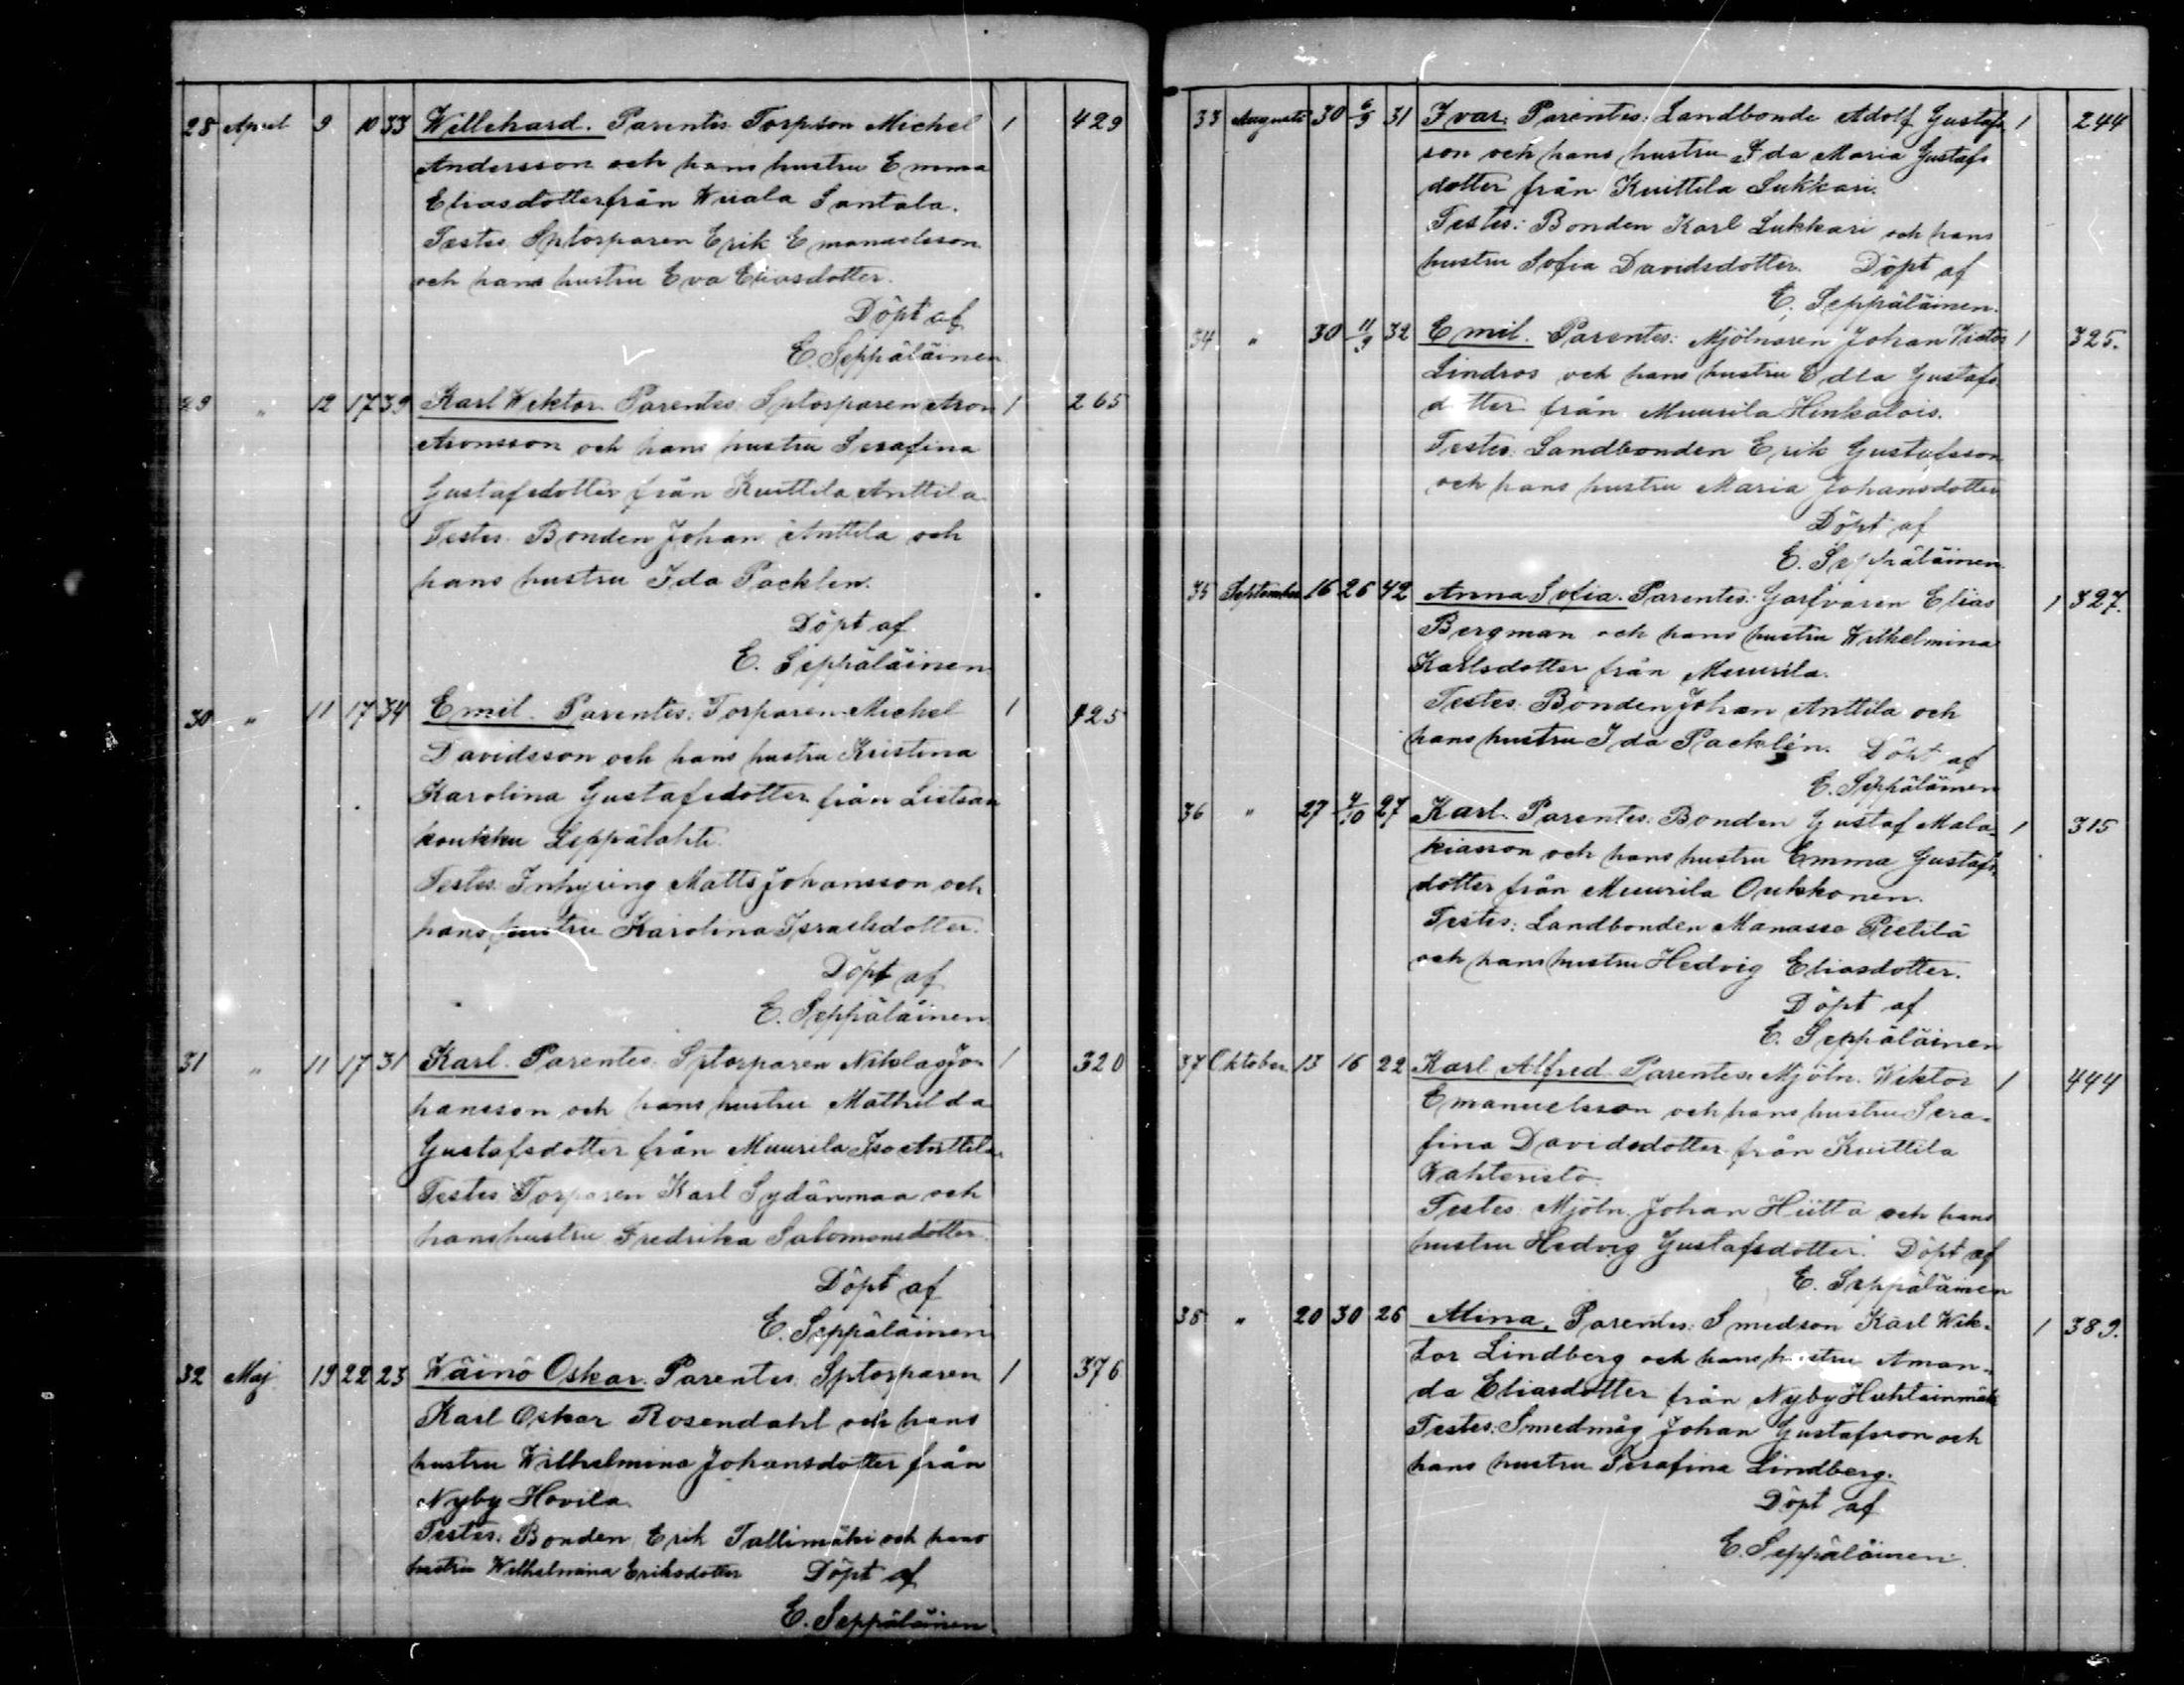 28 April 9 10 33 Willehard. Parentes: Torpson Michel 1 429
Andersson och hans hustru Emma
Eliasdotter från Wiiala Santala.
Testes: Sptorparen Erik Emanuelsson
och hans hustru Eva Eliasdotter.
Döpt af
E. Seppäläinen
29 " 12 17 39 Karl Wiktor. Parentes: Sptorparen Aron 1 265
Aronsson och hans hustru Serafina
Gustafsdotter från Kuittila Anttila
Testes: Bonden Johan Anttila och
hans hustru Ida Packlen.
Döpt af
E. Seppäläinen
30 " 11 17 34 Emil. Parentes: Torparen Michel 1 425
Davidsson och hans hustru Kristina
Karolina Gustafsdotter från Lietsan
koukku Leppälahti.
Testes: Inhysing Matts Johansson och
hans hustru Karolina Israelsdotter.
Döpt af
E. Seppäläinen
31 " 11 17 31 Karl. Parentes: Sptorparen Nikolas Jo- 1 320
hansson och hans hustru Mathilda
Gustafsdotter från Muurila Iso Anttila.
Testes: Torparen Karl Sydänmaa och
hans hustru Fredrika Salomonsdotter.
Döpt af
E. Seppäläinen
32 Maj 19 22 23 Wäinö Oskar. Parentes: Sptorparen 1 376
Karl Oskar Rosendahl och hans
hustru Wilhelmina Johansdotter från
Nyby Hovila.
Testes: Bonden Erik Tallimäki och hans
hustru Wilhelmina Eriksdotter Döpt af
E. Seppäläinen
33 Augusti 30 6/9 31 Ivar. Parentes: Landbonde Adolf Gustafs 1 244
son och hans hustru Ida Maria Gustafs
dotter från Kuittila Lukkari.
Testes: Bonden Karl Lukkari och hans
hustru Sofia Davidsdotter. Döpt af
E. Seppäläinen.
34 " 30 11/9 32 Emil. Parentes: Mjölnaren Johan Victor 1 325.
Lindros och hans hustru Edla Gustafs
dotter från Muurila Hinkalois.
Testes: Landbonden Erik Gustafsson
och hans hustru Maria Johansdotter
Döpt af
E. Seppäläinen
35 September 16 26 42 Anna Sofia. Parentes: Garfvaren Elias 1 327.
Bergman och hans hustru Wilhelmina
Karlsdotter från Muurila.
Testes: Bonden Johan Anttila och
hans hustru Ida Packlén. Döpt af
E. Seppäläinen
36 " 27 4/10 27 Karl. Parentes: Bonden Gustaf Mala- 1 315
kiasson och hans hustru Emma Gustafs-
dotter från Muurila Oukkonen.
Testes: Landbonden Manasse Pietilä
och hans hustru Hedvig Eliasdotter.
Döpt af
E. Seppäläinen
37 Oktober 13 16 22 Karl Alfred. Parentes: Mjöln. Wiktor 1 444
Emanuelsson och hans hustru Sera-
fina Davidsdotter från Kuittila
Wahteristo.
Testes: Mjöln. Johan Hiitta och hans
hustru Hedvig Gustafsdotter. Döpt af
E. Seppäläinen
38 " 20 30 26 Alina. Parentes: Smedson Karl Wik- 1 389.
tor Lindberg och hans hustru Aman-
da Eliasdotter från Nyby Huhtainmäki
Testes: Smedmåg Johan Gustafsson och
hans hustru Serafina Lindberg.
Döpt af
E. Seppäläinen.